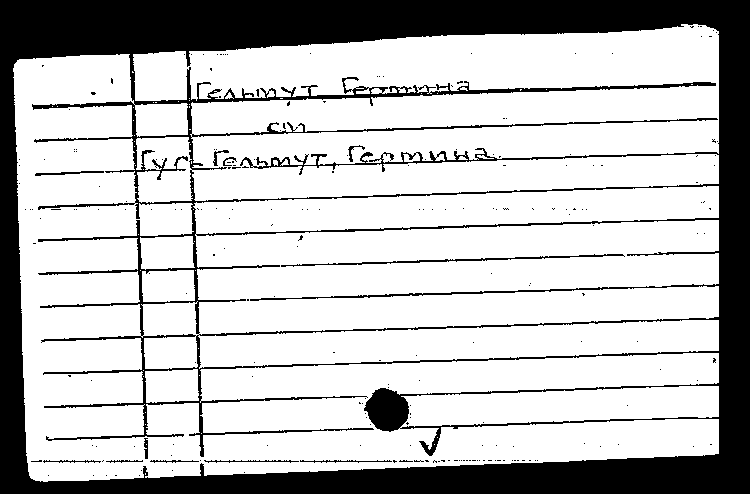 Гельмут, Гертина
см
Гус-Гельмут, Гертина